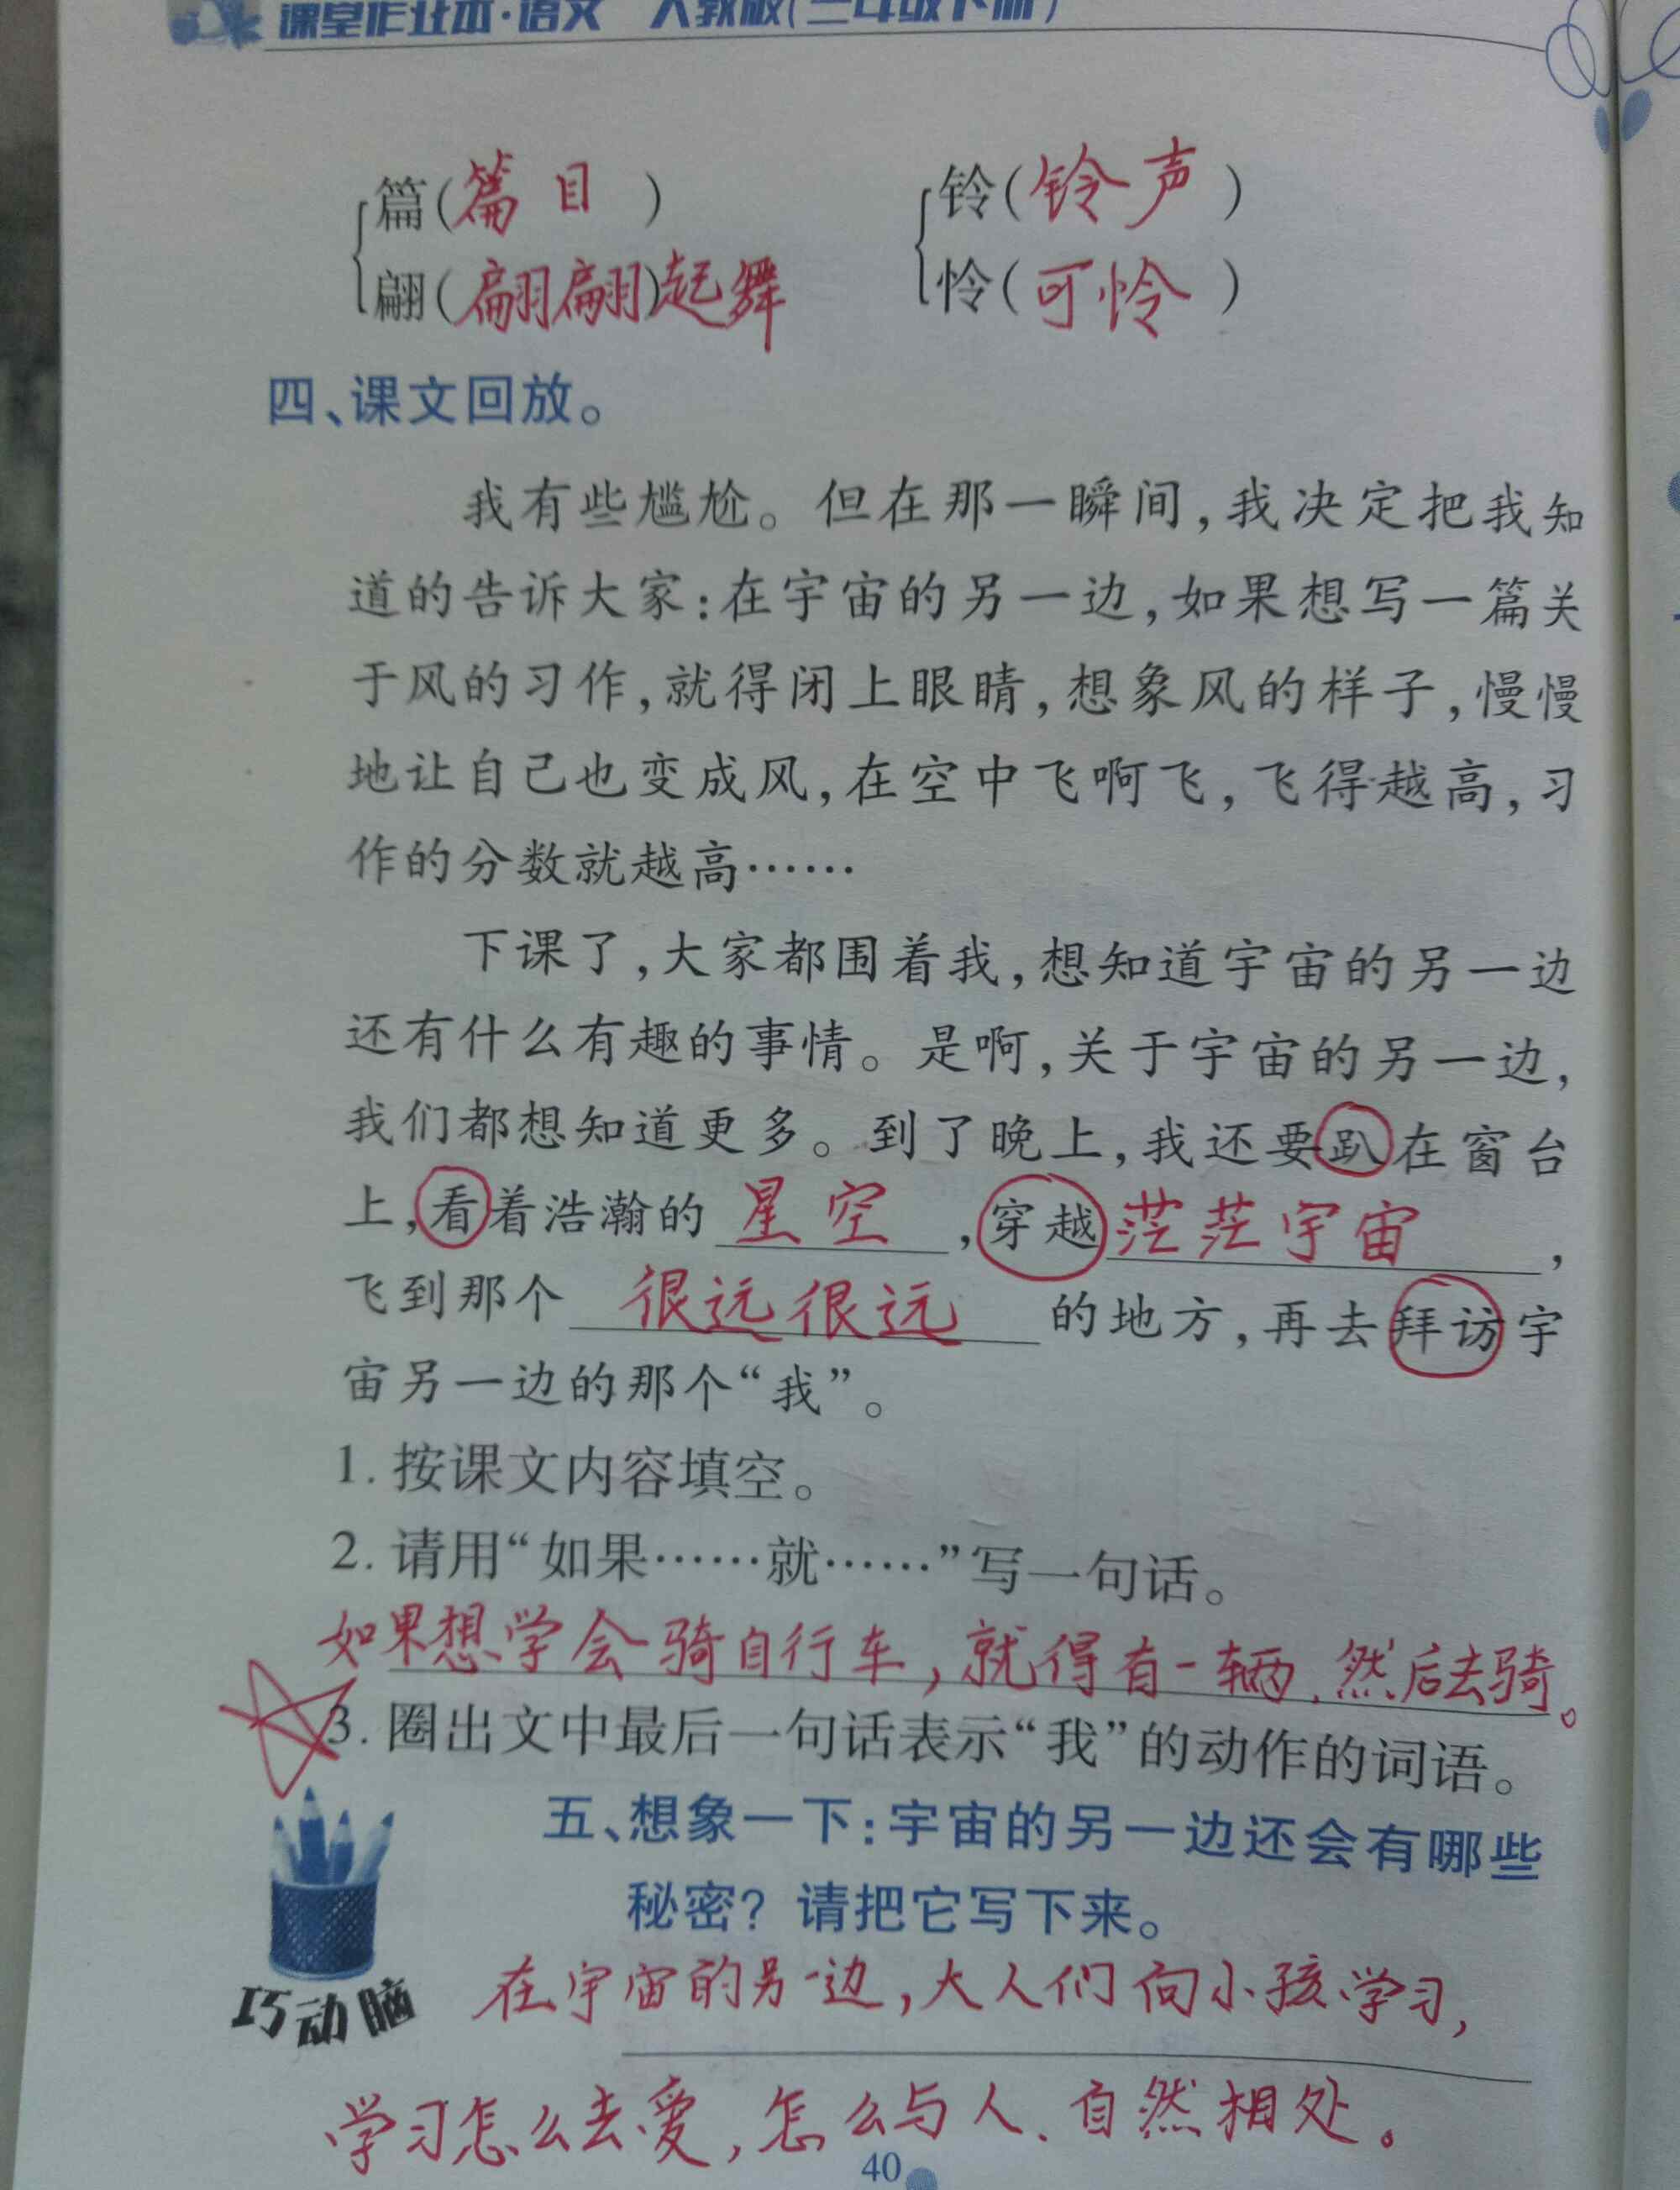 课堂作业本·语文 人教版(三年级下册)
篇(篇目) 铃(铃声)
翩(翩翩)起舞 怜(可怜)
四、课文回放。
我有些尴尬。但在那一瞬间,我决定把我知
道的告诉大家:在宇宙的另一边,如果想写一篇关
于风的习作,就得闭上眼睛,想象风的样子,慢慢
地让自己也变成风,在空中飞啊飞,飞得越高,习
作的分数就越高……
下课了,大家都围着我,想知道宇宙的另一边
还有什么有趣的事情。是啊,关于宇宙的另一边,
我们都想知道更多。到了晚上,我还要趴在窗台
上,看着浩瀚的 星空 ,穿越茫茫宇宙 ,
飞到那个 很远很远 的地方,再去拜访宇
宙另一边的那个“我”。
1. 按课文内容填空。
2. 请用“如果……就……”写一句话。
如果想学会骑自行车,就得有一辆,然后去骑。
3. 圈出文中最后一句话表示“我”的动作的词语。
五、想象一下:宇宙的另一边还会有哪些
秘密? 请把它写下来。
巧动脑
在宇宙的另一边,大人们向小孩学习,
学习怎么去爱,怎么与人、自然相处。
40